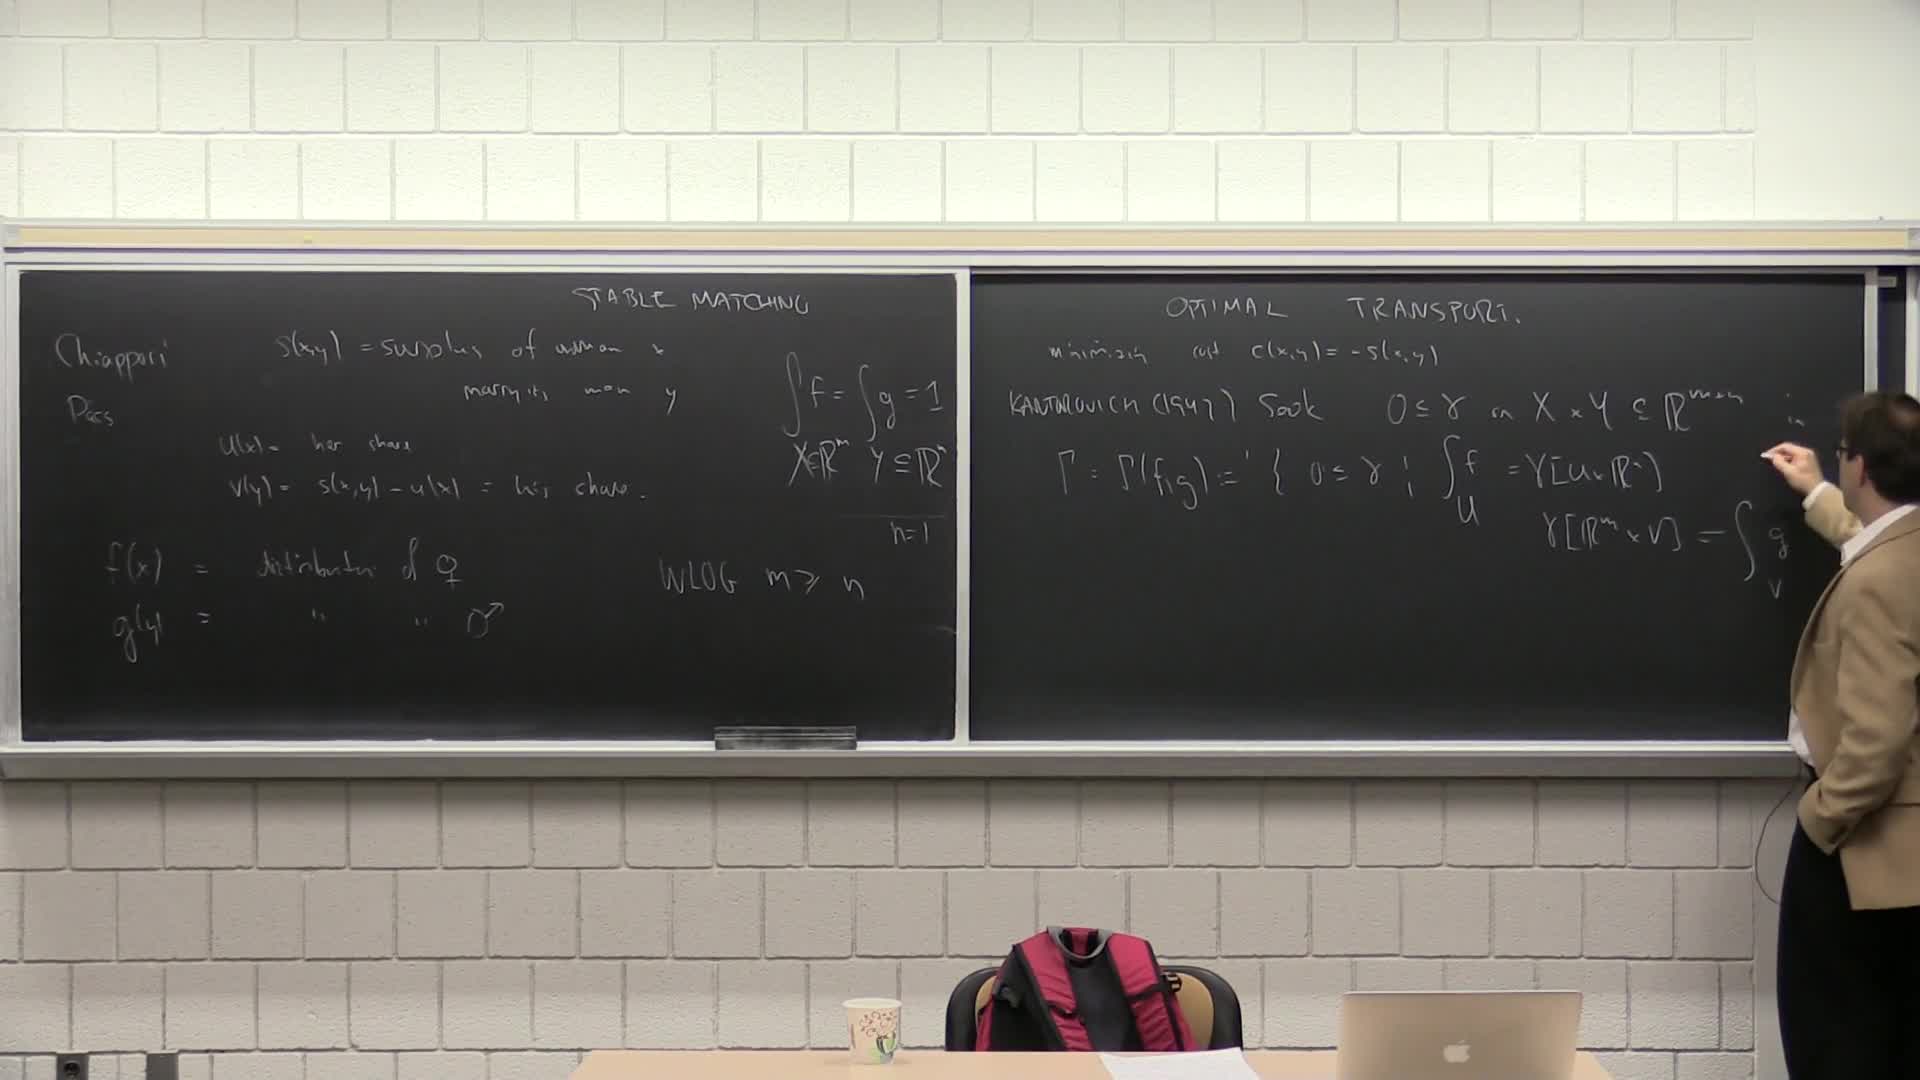 STABLE MATCHING
Chiappori
Pass
s(x,y) = surplus of woman x
marrying man y
u(x) = her share
v(y) = s(x,y) - u(x) = his share.
∫f = ∫g = 1
X⊆ℝ^m Y⊆ℝ^n
n=1
f(x) = distribution of ♀
g(y) = " " ♂
WLOG m ≥ n
OPTIMAL TRANSPORT.
minimizing cost c(x,y) = -s(x,y)
KANTOROVICH (1942) Seek 0 ≤ γ on X × Y ⊆ ℝ^{m+n} in
Γ = Γ(f,g) := { 0 ≤ γ ; ∫_U f = γ[U×ℝ^n]
γ[ℝ^m × V] = ∫_V g